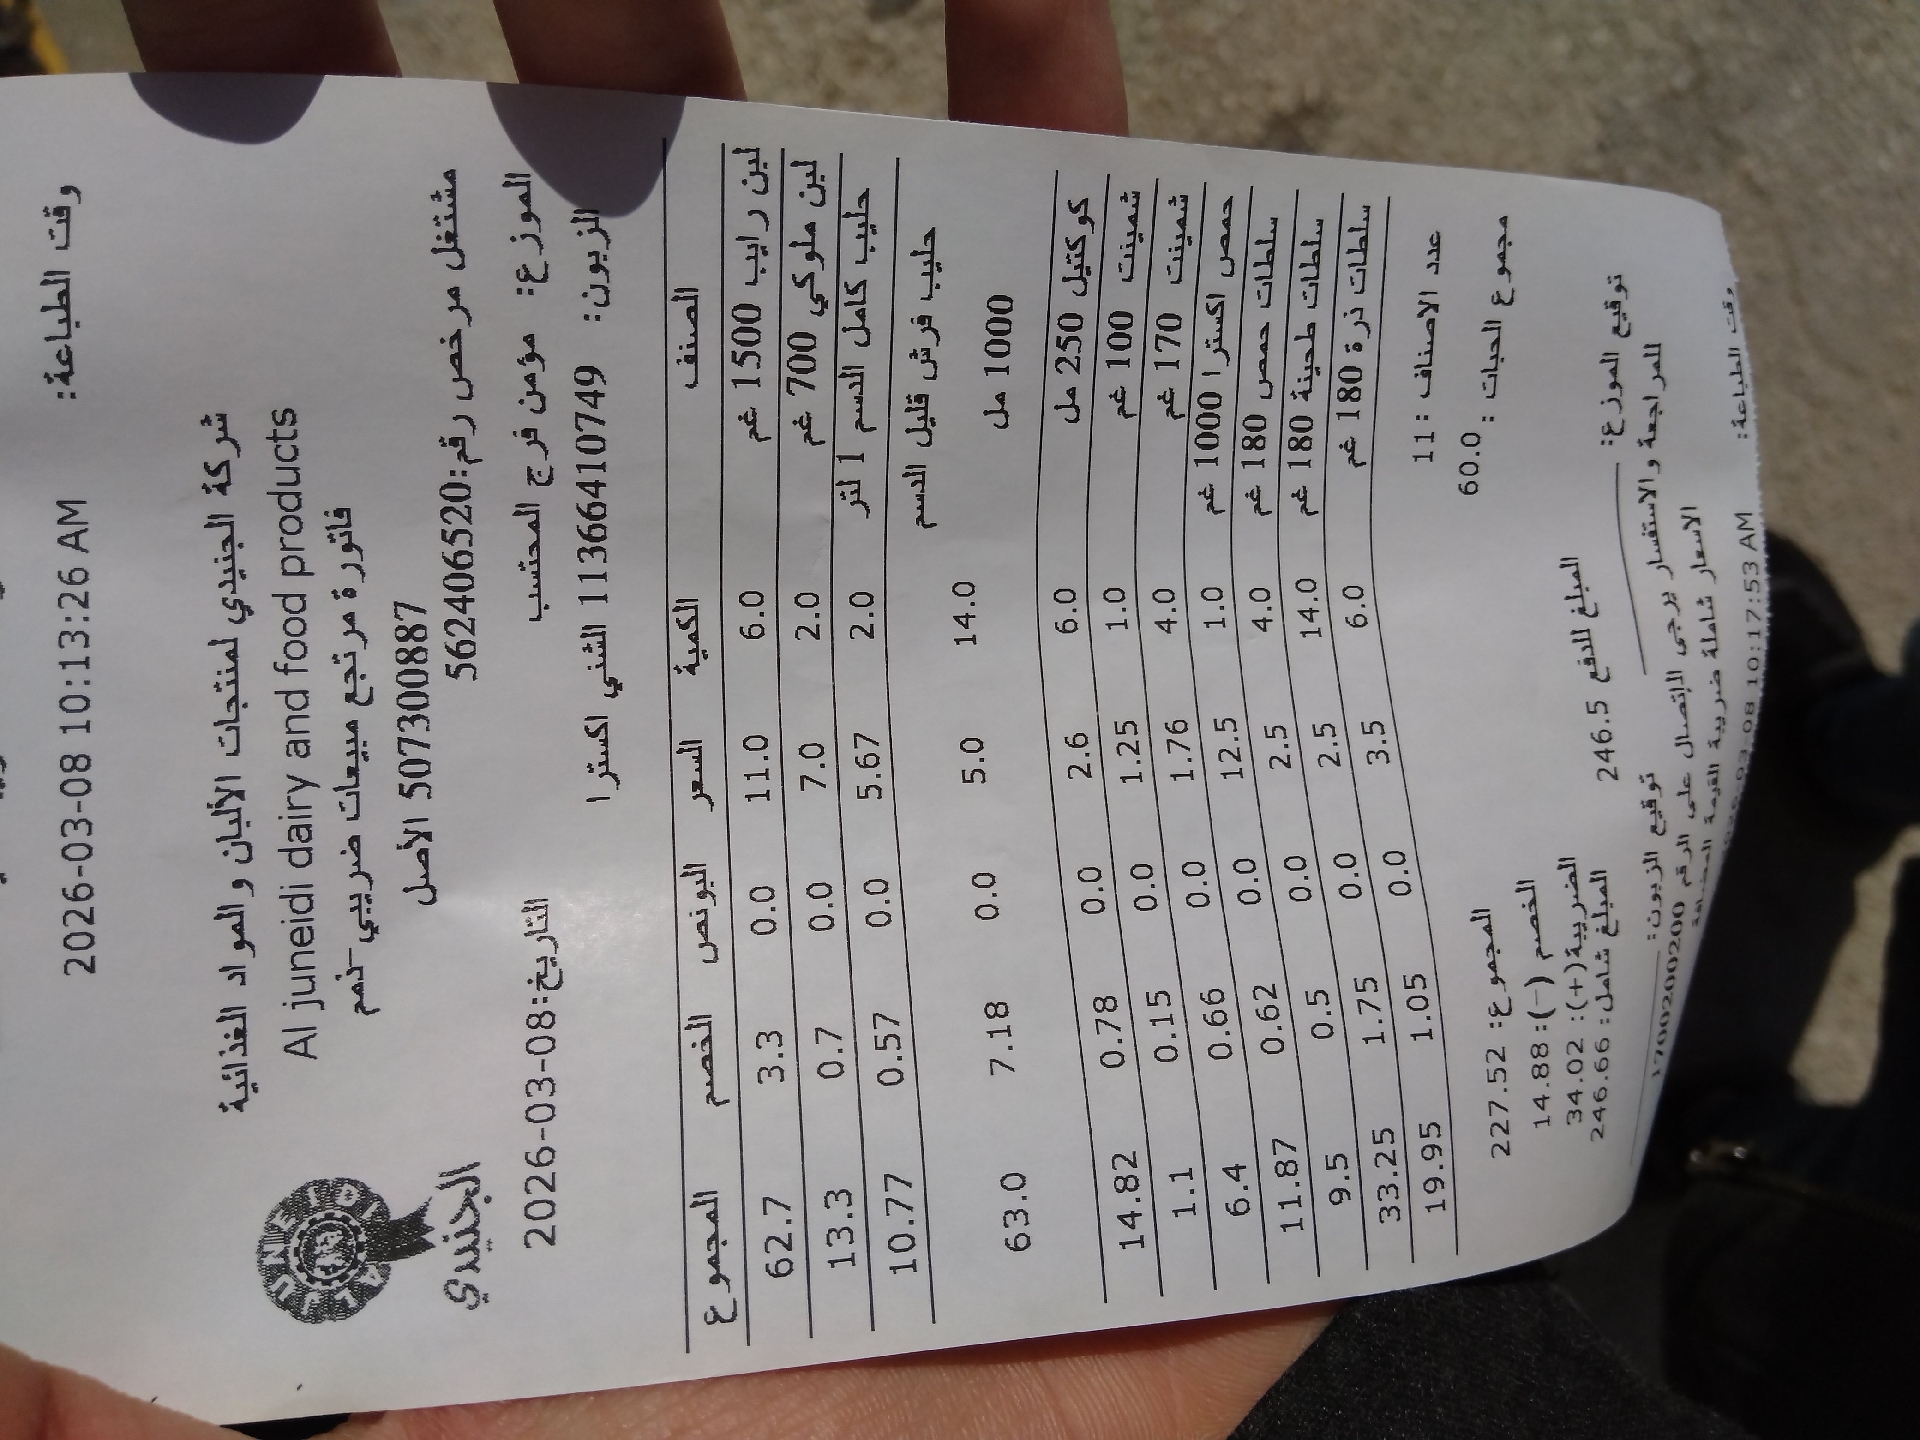 وقت الطباعة: 2026-03-08 10:13:26 AM
شركة الجنيدي لمنتجات الألبان والمواد الغذائية
Al juneidi dairy and food products
فاتورة مرتجع مبيعات ضريبي-ذمم
507300887 الأصل
مشتغل مرخص رقم:562406520
ALJUNEIDI
الجنيدي
الموزع: مؤمن فرج المحتسب التاريخ:2026-03-08
الزبون: 11366410749 الشني اكسترا
الصنف الكمية السعر البونص الخصم المجموع
لبن رايب 1500 غم 6.0 11.0 0.0 3.3 62.7
لبن ملوكي 700 غم 2.0 7.0 0.0 0.7 13.3
حليب كامل الدسم 1 لتر 2.0 5.67 0.0 0.57 10.77
حليب فرش قليل الدسم 1000 مل 14.0 5.0 0.0 7.18 63.0
كوكتيل 250 مل 6.0 2.6 0.0 0.78 14.82
شمينت 100 غم 1.0 1.25 0.0 0.15 1.1
شمينت 170 غم 4.0 1.76 0.0 0.66 6.4
حمص اكسترا 1000 غم 1.0 12.5 0.0 0.62 11.87
سلطات حمص 180 غم 4.0 2.5 0.0 0.5 9.5
سلطات طحينة 180 غم 14.0 2.5 0.0 1.75 33.25
سلطات ذرة 180 غم 6.0 3.5 0.0 1.05 19.95
عدد الاصناف : 11
المجموع: 227.52
مجموع الحبات : 60.0
الخصم (-): 14.88
الضريبة(+): 34.02
المبلغ للدفع 246.5 المبلغ شامل: 246.66
توقيع الموزع: توقيع الزبون:
للمراجعة والاستفسار يرجى الاتصال على الرقم 1700200200
الاسعار شاملة ضريبة القيمة المضافة
وقت الطباعة: 2026-03-08 10:17:53 AM